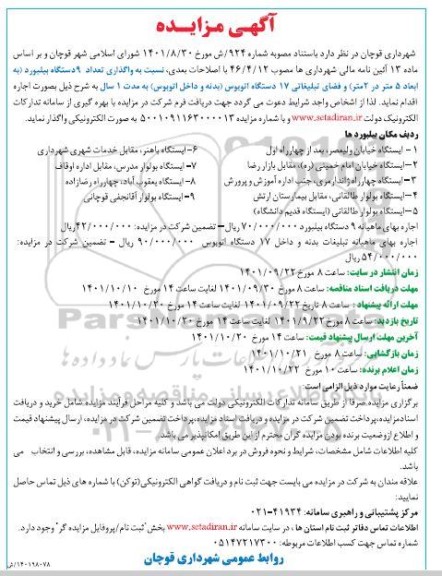 آگهی مزایده
شهرداری قوچان در نظر دارد باستناد مصوبه شماره ۹۲۴/ش مورخ ۱۴۰۱/۸/۳۰ شورای اسلامی شهر قوچان و بر اساس
ماده ۱۳ آئین نامه مالی شهرداری ها مصوب ۴۶/۴/۱۲ با اصلاحات بعدی، نسبت به واگذاری تعداد ۹ دستگاه بیلبورد (به
ابعاد ۵ متر در ۲متر) و فضای تبلیغاتی ۱۷ دستگاه اتوبوس (بدنه و داخل اتوبوس) به مدت ۱ سال به شرح ذیل بصورت اجاره
اقدام نماید. لذا از اشخاص واجد شرایط دعوت می گردد جهت دریافت فرم شرکت در مزایده با بهره گیری از سامانه تدارکات
الکترونیک دولت www.setadiran.ir و با شماره مزایده ۵۰۰۱۰۹۱۱۶۳۰۰۰۰۱۳ به صورت الکترونیکی واگذار نماید.
ردیف مکان بیلبورد ها
۱- ایستگاه خیابان ولیعصر، بعد از چهارراه اول
۶- ایستگاه باهنر، مقابل خدمات شهری شهرداری
۲- ایستگاه خیابان امام خمینی (ره)، مقابل بازار رضا
۷- ایستگاه بولوار مدرس، مقابل اداره اوقاف
۳- ایستگاه چهارراه ژاندارمری، جنب اداره آموزش و پرورش
۸- ایستگاه یعقوب آباد، چهارراه رضازاده
۴- ایستگاه بولوار طالقانی، مقابل بیمارستان ارتش
۹- ایستگاه بولوار آقانجفی قوچانی
۵- ایستگاه بولوار طالقانی (ایستگاه قدیم دانشگاه)
اجاره بهای ماهیانه ۹ دستگاه بیلبورد ۷۰/۰۰۰/۰۰۰ ریال – تضمین شرکت در مزایده: ۴۲/۰۰۰/۰۰۰ریال
اجاره بهای ماهیانه تبلیغات بدنه و داخل ۱۷ دستگاه اتوبوس ۹۰/۰۰۰/۰۰۰ ریال – تضمین شرکت در مزایده:
۵۴/۰۰۰/۰۰۰ ریال
زمان انتشار در سایت: ساعت ۸ مورخ ۱۴۰۱/۰۹/۲۲
مهلت دریافت اسناد مناقصه: ساعت ۸ مورخ ۱۴۰۱/۰۹/۳۰ لغایت ساعت ۱۴ مورخ ۱۴۰۱/۱۰/۱۰
مهلت ارائه پیشنهاد : ساعت ۸ تاریخ ۱۴۰۱/۰۹/۲۲ لغایت ساعت ۱۴ مورخ ۱۴۰۱/۱۰/۲۰
تاریخ بازدید: ساعت ۸ مورخ ۱۴۰۱/۹/۲۲ لغایت ساعت ۱۴ مورخ ۱۴۰۱/۱۰/۲۰
آخرین مهلت ارسال پیشنهاد قیمت: ساعت ۱۴ مورخ ۱۴۰۱/۱۰/۲۰
زمان بازگشایی: ساعت ۸ مورخ ۱۴۰۱/۱۰/۲۱
زمان اعلام برنده: ساعت ۱۰ مورخ ۱۴۰۱/۱۰/۲۲
ضمناً رعایت موارد ذیل الزامی است:
برگزاری مزایده صرفا از طریق سامانه تدارکات الکترونیکی دولت می باشد و کلیه مراحل فرآیند مزایده شامل خرید و دریافت
اسنادمزایده،پرداخت تضمین شرکت در مزایده و دریافت اسناد مزایده،پرداخت تضمین شرکت در مزایده، ارسال پیشنهاد قیمت
و اطلاع ازوضعیت برنده بودن مزایده گران محترم از این طریق امکانپذیر می باشد.
کلیه اطلاعات شامل مشخصات، شرایط و نحوه فروش در برد اعلان عمومی سامانه مزایده، قابل مشاهده، بررسی و انتخاب می
باشد.
علاقه مندان به شرکت در مزایده می بایست جهت ثبت نام و دریافت گواهی الکترونیکی(توکن) با شماره های ذیل تماس حاصل
نمایید:
مرکز پشتیبانی و راهبری سامانه: ۴۱۹۳۴-۰۲۱
اطلاعات تماس دفاتر ثبت نام استان ها ، در سایت سامانه www.setadiran.ir بخش"ثبت نام/پروفایل مزایده گر" وجود دارد.
شماره تماس جهت کسب اطلاعات مربوطه: ۰۵۱۴۷۲۱۷۳۰۰
روابط عمومی شهرداری قوچان
۱۴۰۱۹۸۰۷۸/ش